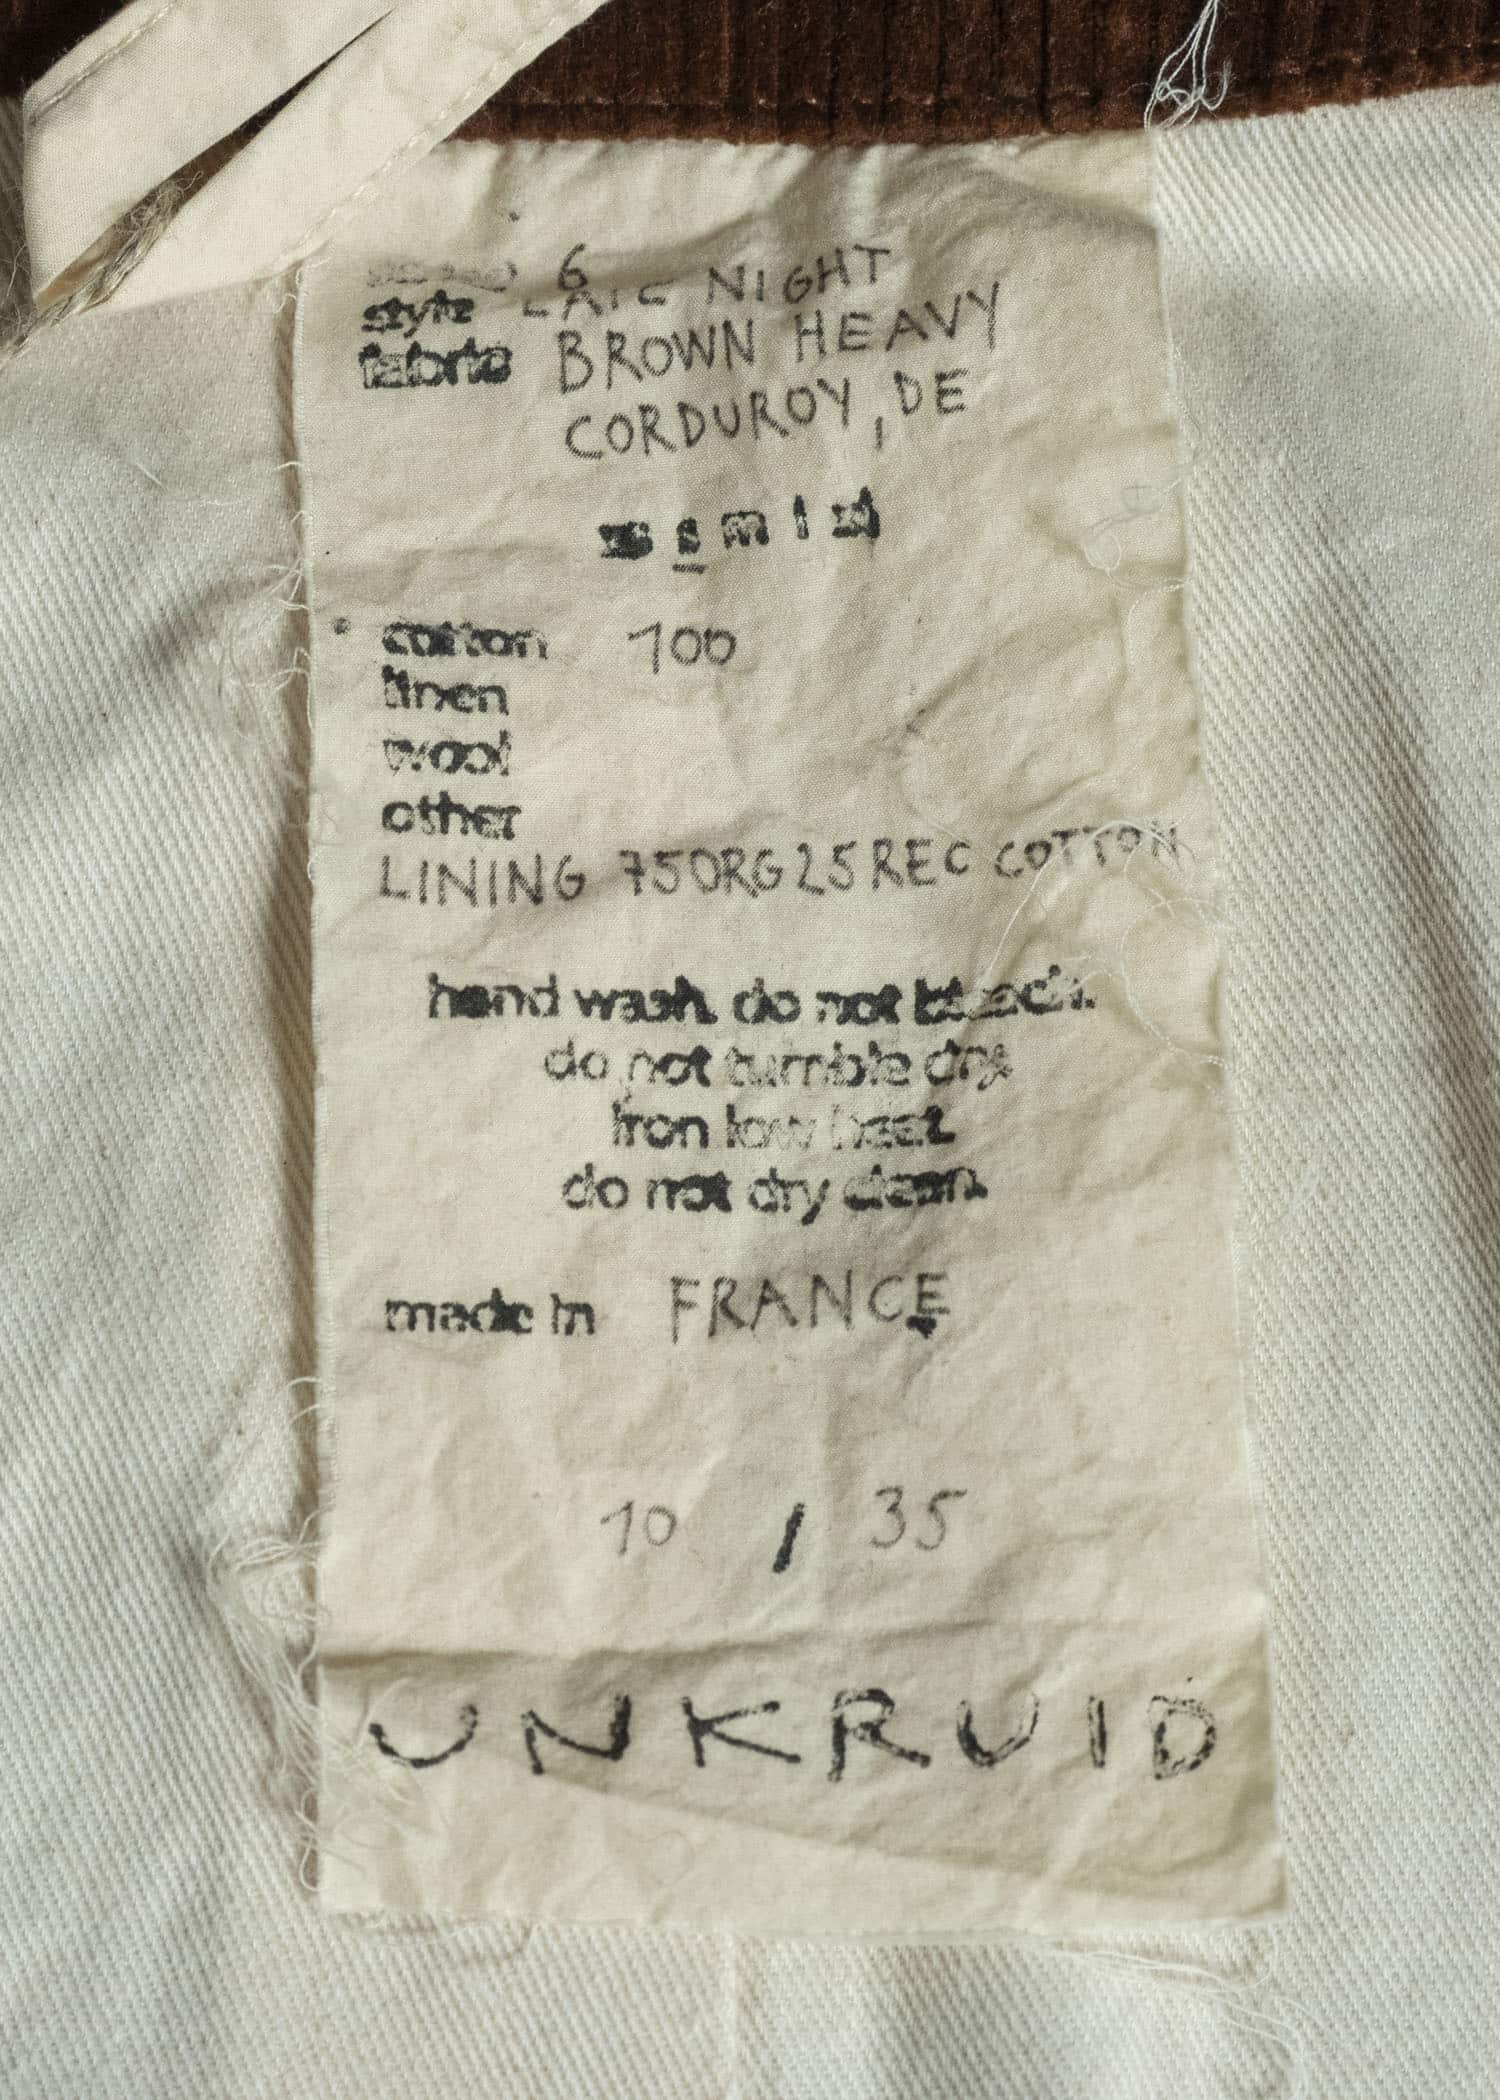 6
style LATE NIGHT
fabric BROWN HEAVY
CORDUROY, DE
xs s m l xl
cotton 100
linen
wool
other
LINING 75ORG25REC COTTON
hand wash. do not bleach.
do not tumble dry.
iron low heat.
do not dry clean.
made in FRANCE
10 / 35
UNKRUID